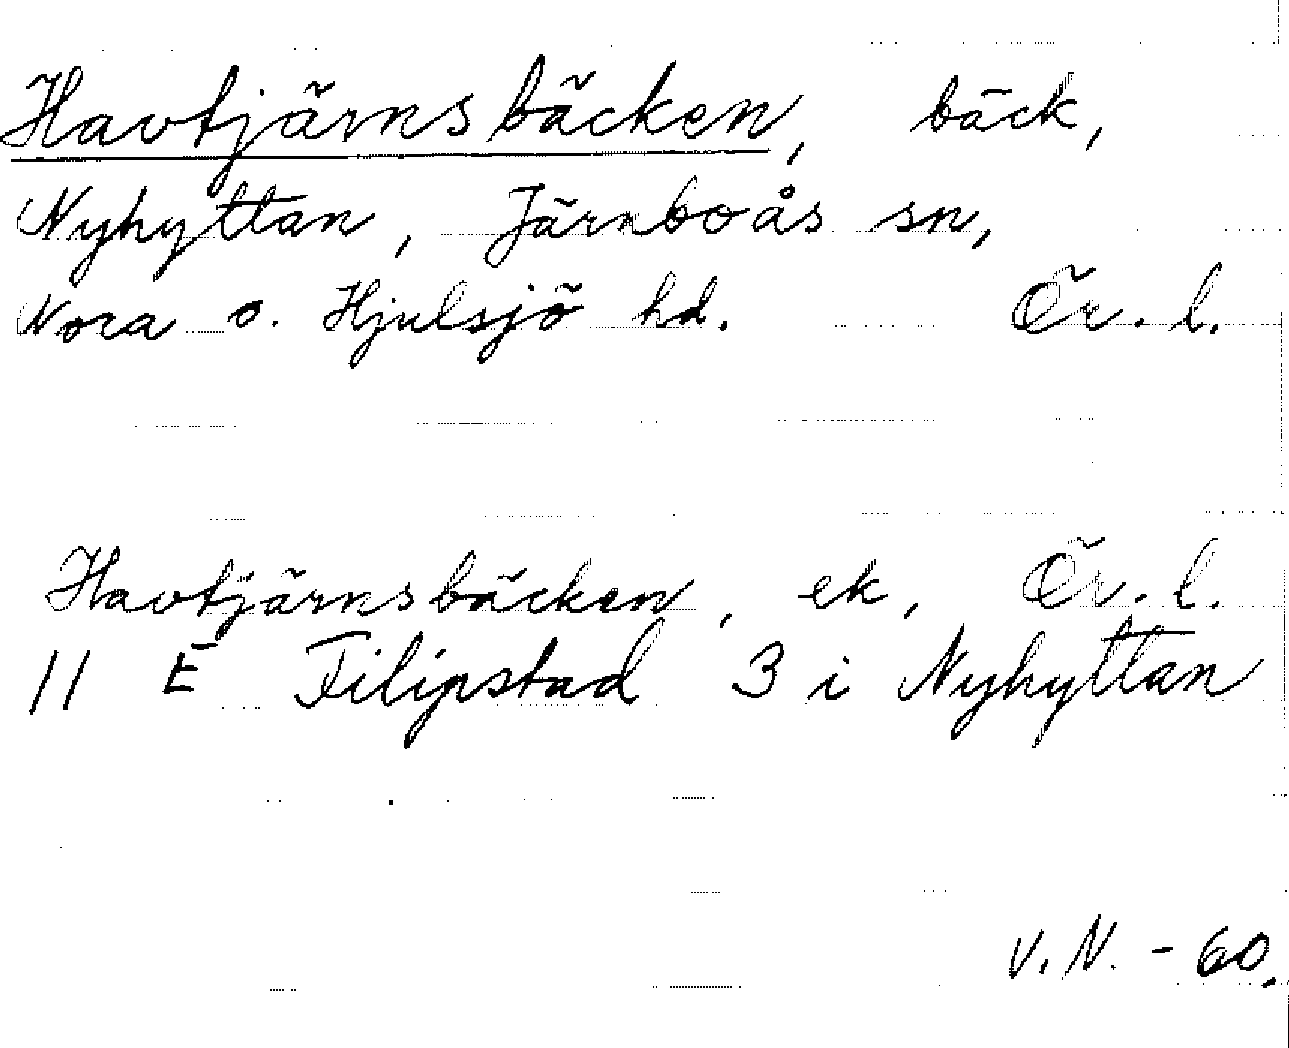 Havtjärnsbäcken, bäck,
Nyhyttan, Järnboås sn,
Nora o. Hjulsjö hd. Ör. l.
Havtjärnsbäcken, ek, Ör. l.
11 E Filipstad 3 i Nyhyttan
V. N. - 60.